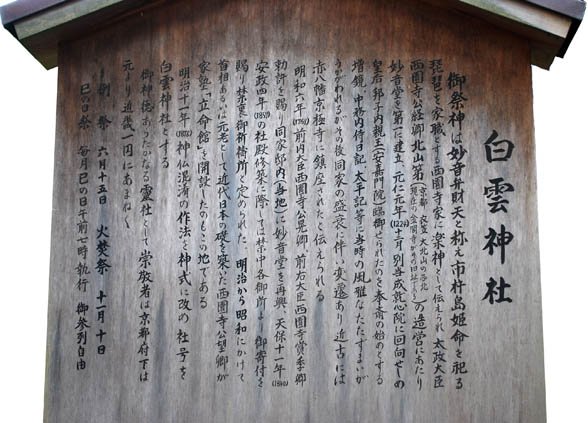 白雲神社
御祭神は妙音弁財天と称え市杵島姫命を祀る
琵琶を家職とする西園寺家に楽神として伝えられ 太政大臣
西園寺公経卿北山第(京都、衣笠 大北山の幸北 現在の金閣寺)の造営にあたり
妙音堂を第一に建立、元仁元年(1224)十二月 別吾成就心院に回向せしの
皇后・邦子内親王(安嘉門院)臨御せられたのを奉斎の始めとする
増鏡、中務内侍日記、太平記等に当時の風雅なたたずまいが
うかがわれるがその後同家の盛衰に伴い変遷あり 近古には
赤八幡京極寺に鎮座されたと伝えられる
明和六年(1769)前内大臣西園寺公晃卿、前右大臣西園寺賞季卿
勅許を賜り同家邸内(当地)に妙音堂を再興、天保十一年(1840)
安政四年(1857)の社殿修築に際しては禁中各御所より御寄付を
賜り禁裏御祈祷所と定められた、明治から昭和にかけて
首相あるいは元老として近代日本の礎を築いた西園寺公望卿が
家塾「立命館」を開設したのもこの地である
明治十一年(1878)神仏混淆の作法を神式に改め 社号を
白雲神社とする
御神徳あらたかなる霊社として 崇敬者は京都府下は
元より近畿一円にあまねく
例祭 六月十五日 火焚祭 十一月十日
巳の日祭 毎月巳の日午前七時執行 御参列自由